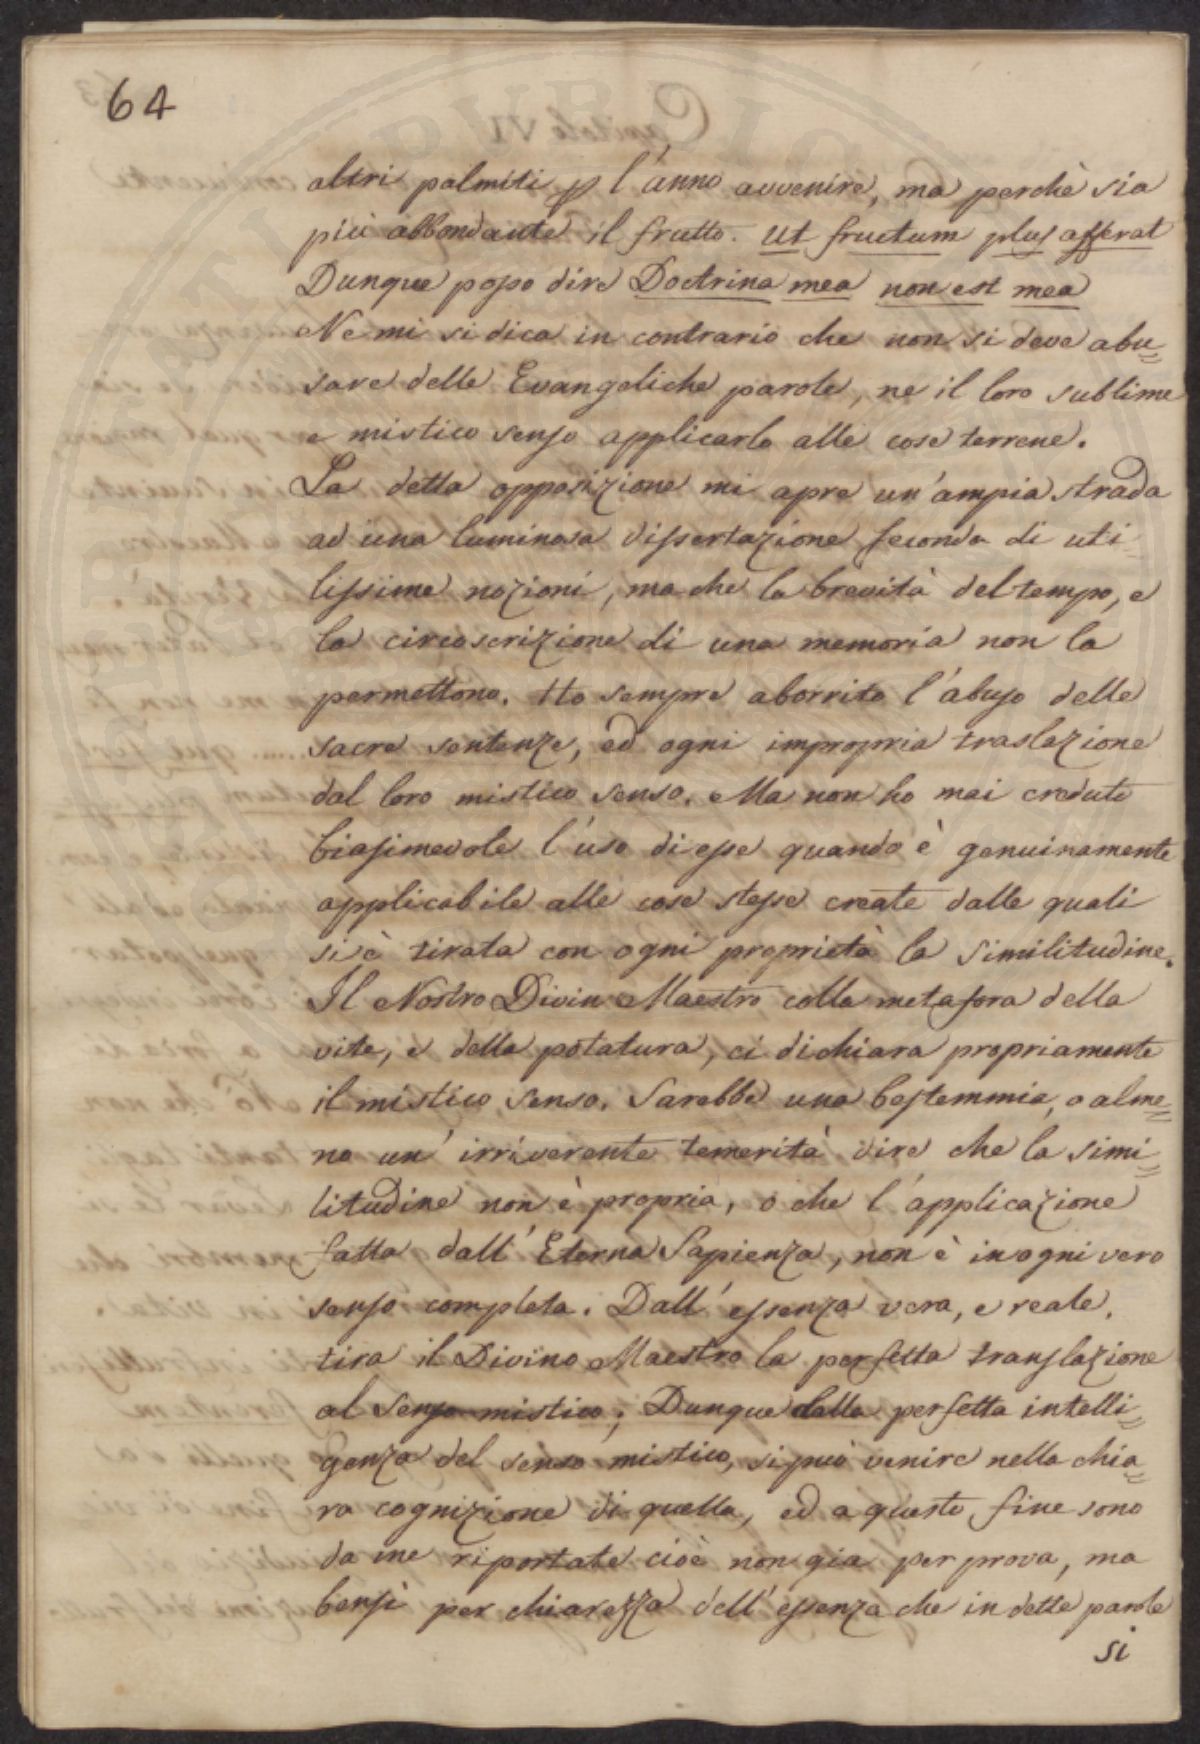 64
altri palmiti p l'anno avvenire, ma perchè sia
più abbondante il frutto. Ut fructum plus afferat
Dunque posso dire Doctrina mea non est mea
Ne mi si dica in contrario che non si deve abu=
sare delle Evangeliche parole, ne il loro sublime
e mistico senso applicarlo alle cose terrene.
La detta opposizione mi apre un'ampia strada
ad una luminosa dissertazione feconda di uti=
lissime nozioni, ma che la brevità del tempo, e
la circoscrizione di una memoria non la
permettono. Ho sempre aborrito l'abuso delle
sacre sentenze, ed ogni impropria traslazione
dal loro mistico senso. Ma non ho mai creduto
biasimevole l'uso di esse quando è genuinamente
applicabile alle cose stesse create dalle quali
si è tirata con ogni proprietà la similitudine.
Il Nostro Divin Maestro colla metafora della
vite, e della potatura, ci dichiara propriamente
il mistico senso. Sarebbe una bestemmia, o alme=
no un' irriverente temerità dire che la simi=
litudine non è propria, o che l'applicazione
fatta dall' Eterna Sapienza, non è in ogni vero
senso completa. Dall' essenza vera, e reale,
tira il Divino Maestro la perfetta translazione
al senso mistico; Dunque dalla perfetta intelli=
genza del senso mistico, si può venire nella chia=
ra cognizione di quella, ed a questo fine sono
da me riportate cioè non gia per prova, ma
bensì per chiarezza dell' essenza che in dette parole
si